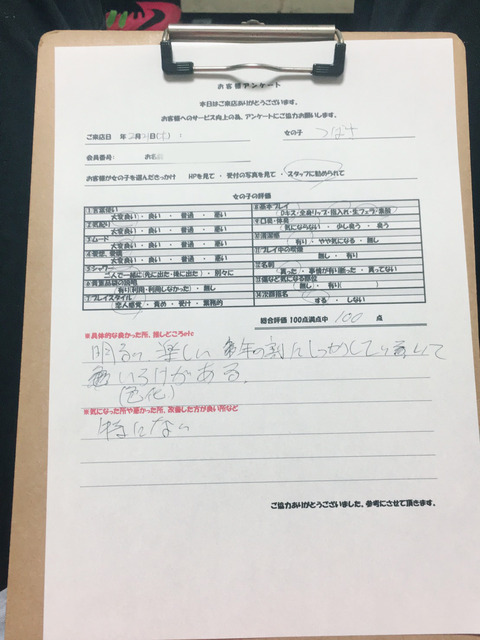 お客様アンケート
本日はご来店ありがとうございます。
お客様へのサービス向上の為、アンケートにご協力お願いします。
ご来店日 年2月21日( ) 女の子 つばさ
会員番号: お名前
お客様が女の子を選んだきっかけ HPを見て ・ 受付の写真を見て ・ スタッフに勧められて
女の子の評価
1 言葉使い
大変良い ・ 良い ・ 普通 ・ 悪い
2 気配り
大変良い ・ 良い ・ 普通 ・ 悪い
3 ムード
大変良い ・ 良い ・ 普通 ・ 悪い
4 容姿、愛嬌
大変良い ・ 良い ・ 普通 ・ 悪い
5 シャワー
二人で一緒(先に出た・後に出た) ・ 別々に
6 貴重品袋の説明
有り(利用・利用しなかった) ・ 無し
7 プレイスタイル
恋人感覚 ・ 責め ・ 受け ・ 業務的
8 基本プレイ
Dキス・全身リップ・指入れ・生フェラ・素股
9 口臭・体臭
気にならない ・ 少し臭う ・ 臭う
10 清潔感
有り ・ やや気になる ・ 無し
11 プレイ中の喫煙
無し ・ 有り
12 名刺
貰った ・ 事情が有り断った ・ 貰ってない
13 傷など気になる部位
無し ・ 有り( )
14 次回指名
する ・ しない
総合評価 100点満点中 100 点
※具体的な良かった所、推しどころetc
明るい 楽しい 年の割にしっかりしていて
いろけがある
(色化)
※気になった所や悪かった所、改善した方が良い所など
特にない
ご協力ありがとうございました、参考にさせて頂きます。